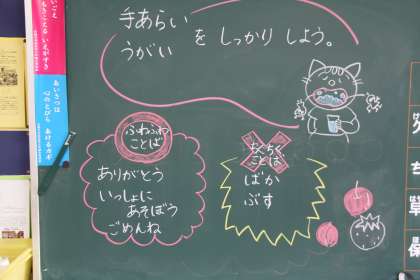 手あらい
うがい
を しっかり しよう。
ふわふわ
ことば
ありがとう
いっしょに
あそぼう
ごめんね
ちくちく
ことば
ばか
ぶす
あいさつは
心のとびら
あけるカギ